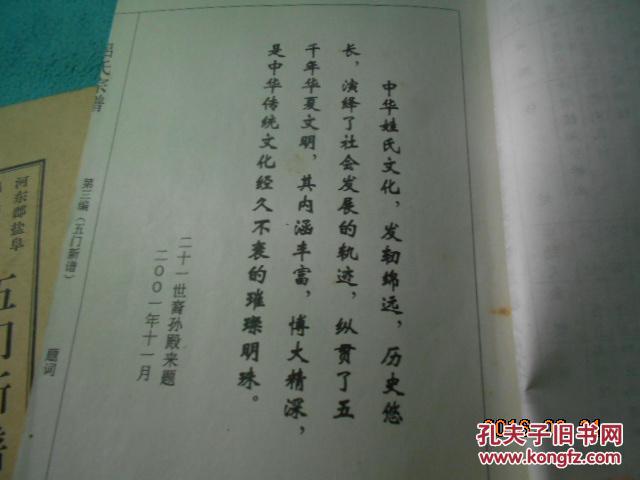 中华姓氏文化，发轫绵远，历史悠
长，演绎了社会发展的轨迹，纵贯了五
千年华夏文明，其内涵丰富，博大精深，
是中华传统文化经久不衰的璀璨明珠。
二十一世裔孙殿来题
二〇〇一年十一月
氏宗谱
第三编（五门新谱）
题词
河东郡盐阜
五门新谱
孔夫子旧书网
www.kongfz.com